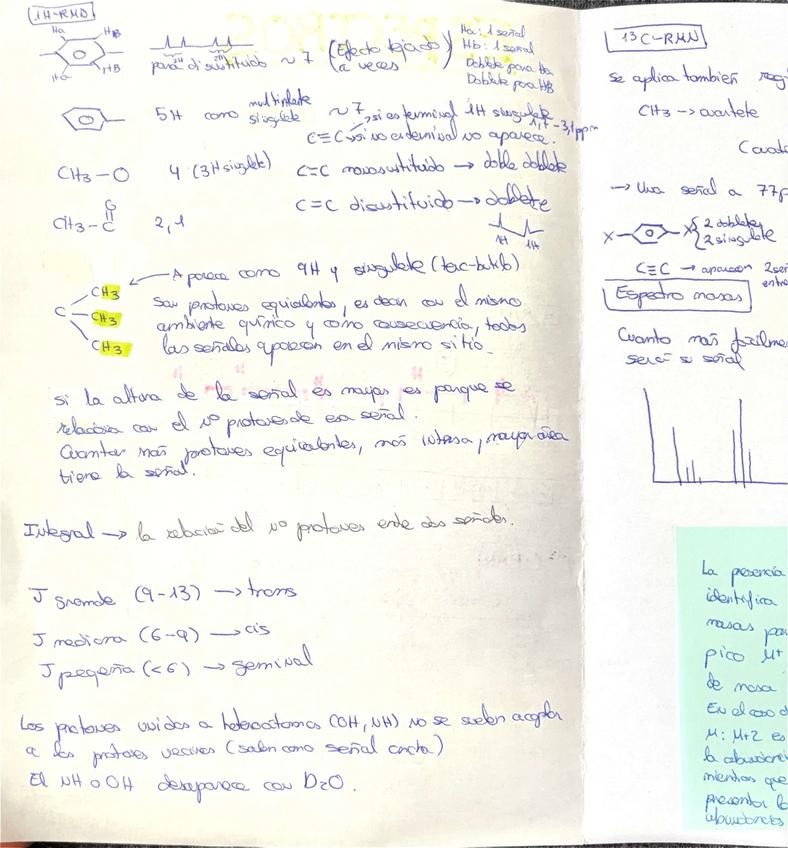 1H-RMN
Ha HB
Ha HB
para disustituido ~ 7 (Efecto tejado) a veces
Ha: 1 señal
Hb: 1 señal
Doblete para Ha
Doblete para HB
5H como multiplete singulete ~ 7
C≡C si es terminal 1H singulete 1,7-3,1 ppm
si no es terminal no aparece.
CH3 - O 4 (3H singulete)
C=C monosustituido → doble doblete
CH3 - C 2,1
C=C disustituido → doblete
1H 1H
C CH3 CH3 CH3
Aparece como 9H y singulete (terc-butilo)
Son protones equivalentes, es decir con el mismo
ambiente químico y como consecuencia, todas
las señales aparecen en el mismo sitio.
Si la altura de la señal es mayor es porque se
relaciona con el nº protones de esa señal.
Cuantos más protones equivalentes, más intensa, mayor área
tiene la señal.
Integral → la relación del nº protones entre dos señales.
J grande (9-13) → trans
J mediana (6-9) → cis
J pegeña (<6) → geminal
Los protones unidos a heteroátomos (OH, NH) no se suelen acoplar
a los protones vecinos (salen como señal ancha)
El NH o OH desaparece con D2O.
13C-RMN
Se aplica también
CH3 → cuartete
→ Una señal a 77
X X 2 dobletes
2 singulete
C≡C → aparecen
Espectro masas
Cuanto más
será su señal
La presencia
identifica
masas
pico M+
de masa
En el caso
M: M+2 es
la abundancia
mientras que
presentar
abundancias